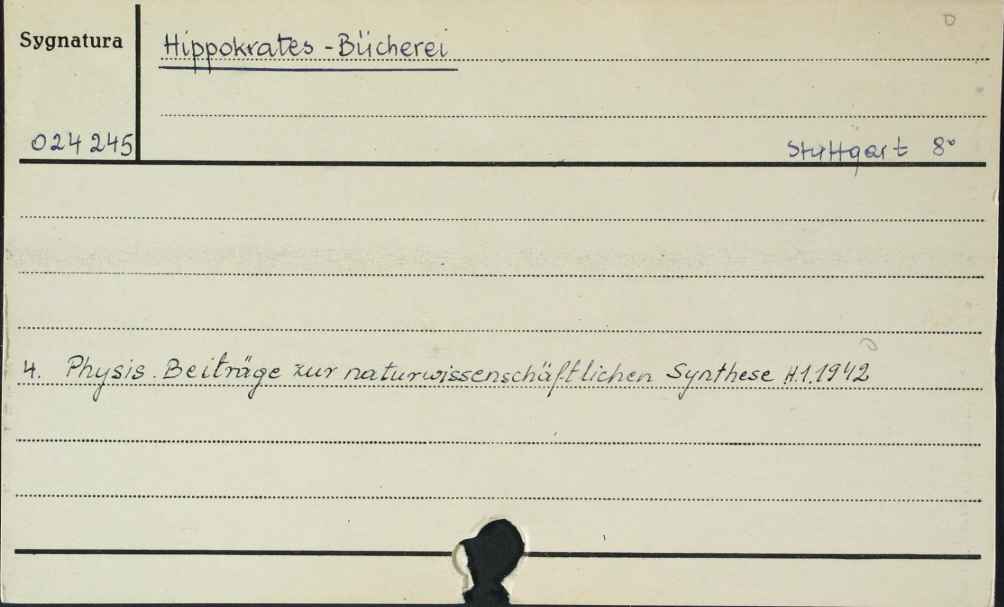 Sygnatura
Hippokrates-Bücherei
024245
Stuttgart 8°
4. Physis. Beiträge zur naturwissenschäftlichen Synthese H.1.1942